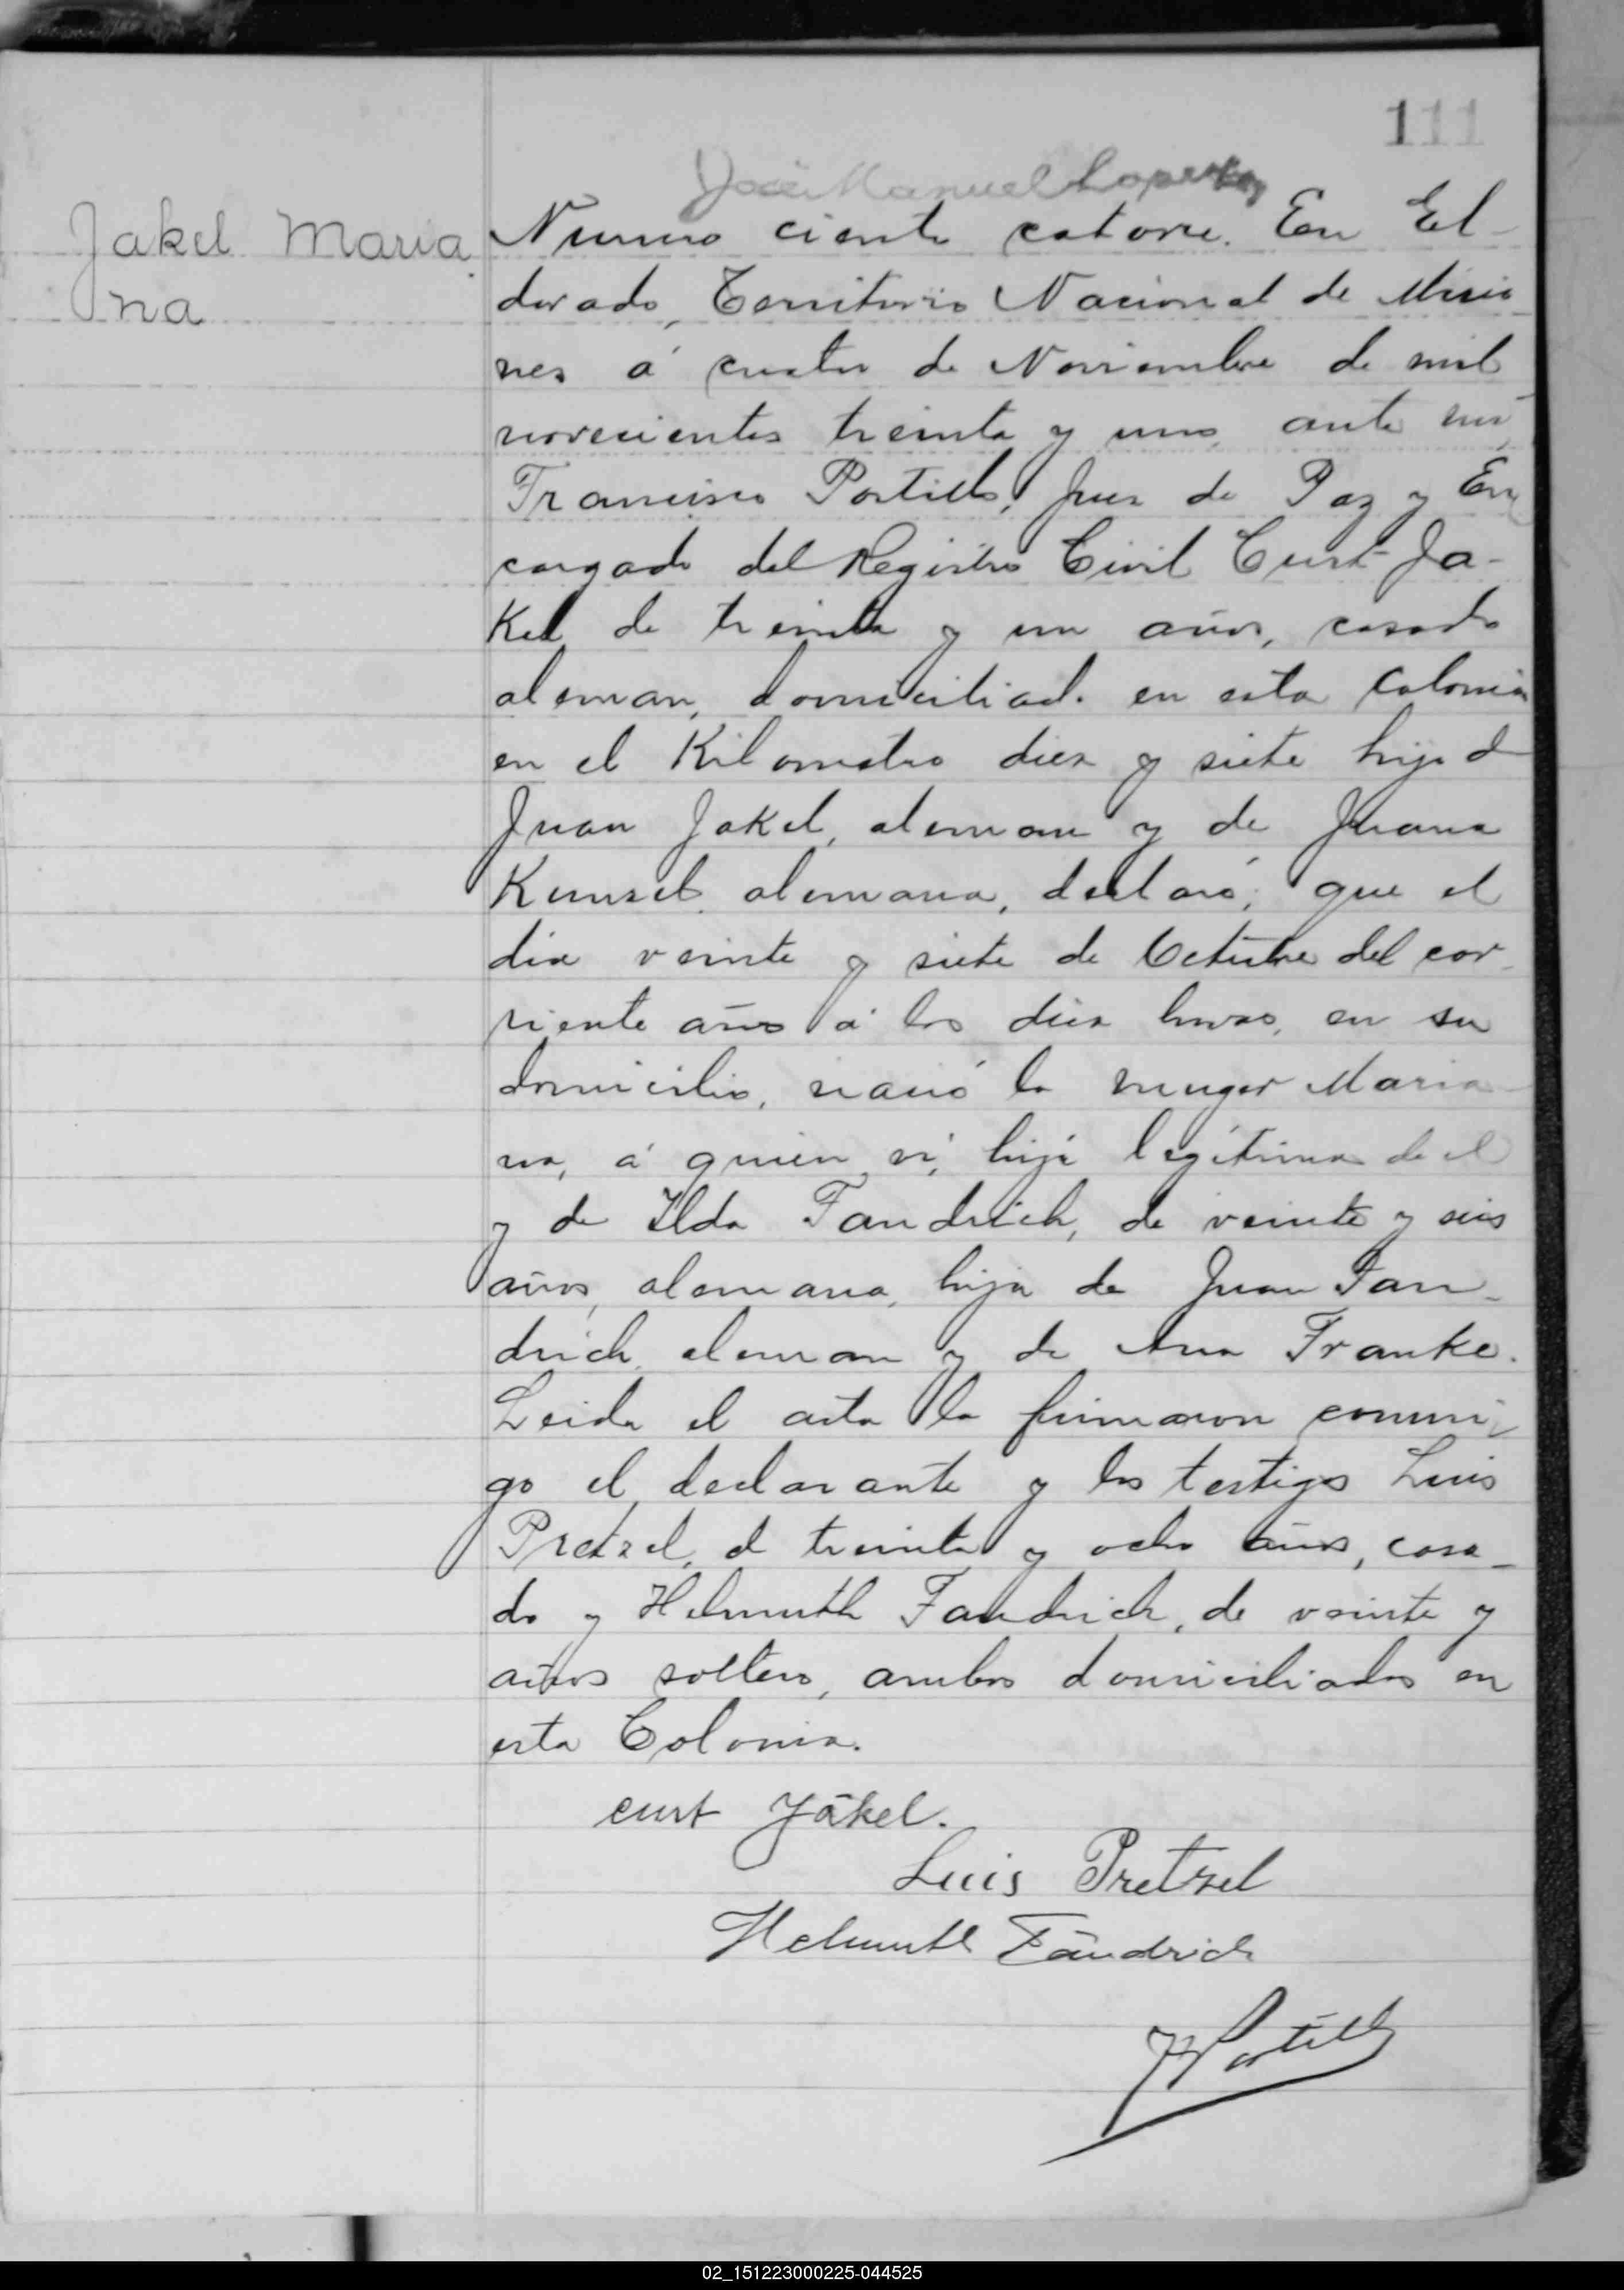 111
José Manuel Lopez
Jakel Maria
na
Numero ciento catorce. En El-
dorado, Territorio Nacional de Misio-
nes á cuatro de Noviembre de mil
novecientos treinta y uno, ante mi
Francisco Portillo, Juez de Paz y En
cargado del Registro Civil Curt Ja-
Kel de treinta y un años, casado
aleman, domiciliado en esta Colonia
en el Kilometro diez y siete hijo d
Juan Jakel, aleman y de Juana
Kunzel alemana, declaró; que el
dia veinte y siete de Octubre del cor-
riente año á las diez horas, en su
domicilio, nació la muger Maria-
na, á quien vi, hija legítima de el
y de Ilda Fandrich, de veinte y seis
años, alemana, hija de Juan Fan-
drich, aleman y de Ana Franke.
Leida el acta la firmaron conmi-
go el declarante y los testigos Luis
Pretzel, d treinta y ocho años, casa-
do y Helmuth Fandrich, de veinte y
años soltero, ambos domiciliados en
esta Colonia.
curt Jäkel.
Luis Pretzel
Helmuth Fändrich
F Portillo
02_151223000225-044525